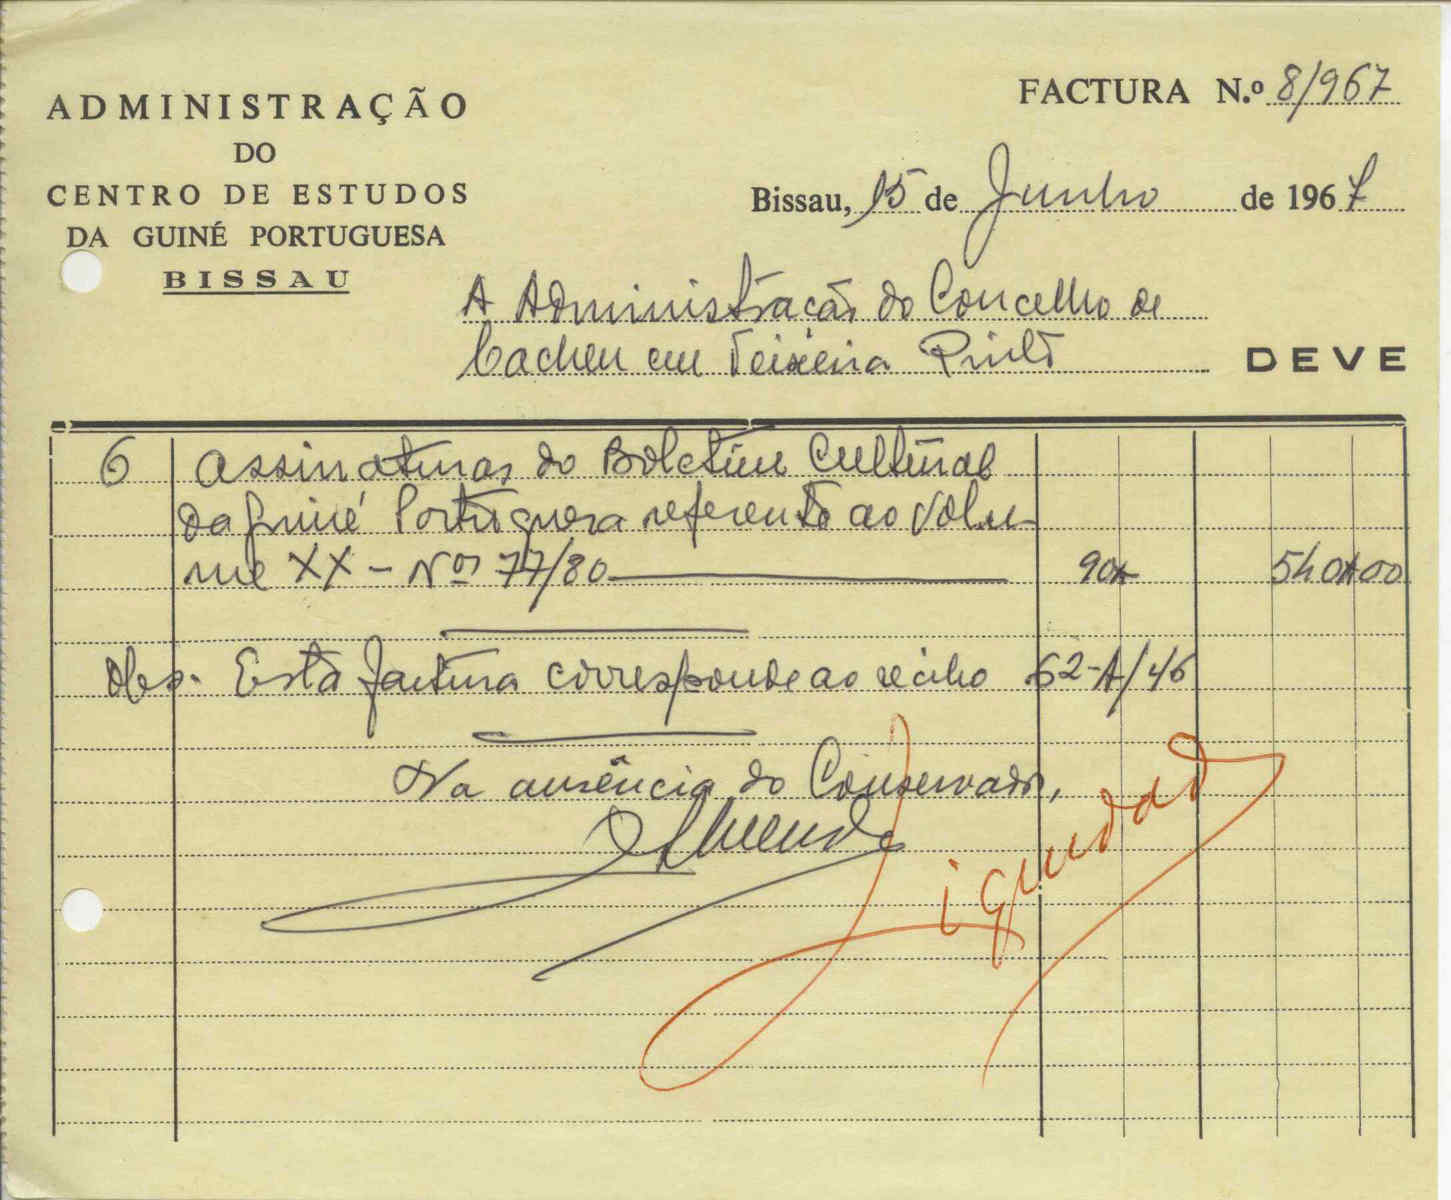 ADMINISTRAÇÃO
DO
CENTRO DE ESTUDOS
DA GUINÉ PORTUGUESA
BISSAU
FACTURA N.º 8/967
Bissau, 15 de Junho de 1967
A Administração do Concelho de
Cacheu em Teixeira Pinto
DEVE
6 Assinaturas do Boletim Cultural
da Guiné Portuguesa referente ao Volu
me XX - Nos 77/80 90$ 540$00
Obs. Esta factura corresponde ao recibo 62-A/46
Na ausência do Conservador,
Liquidado